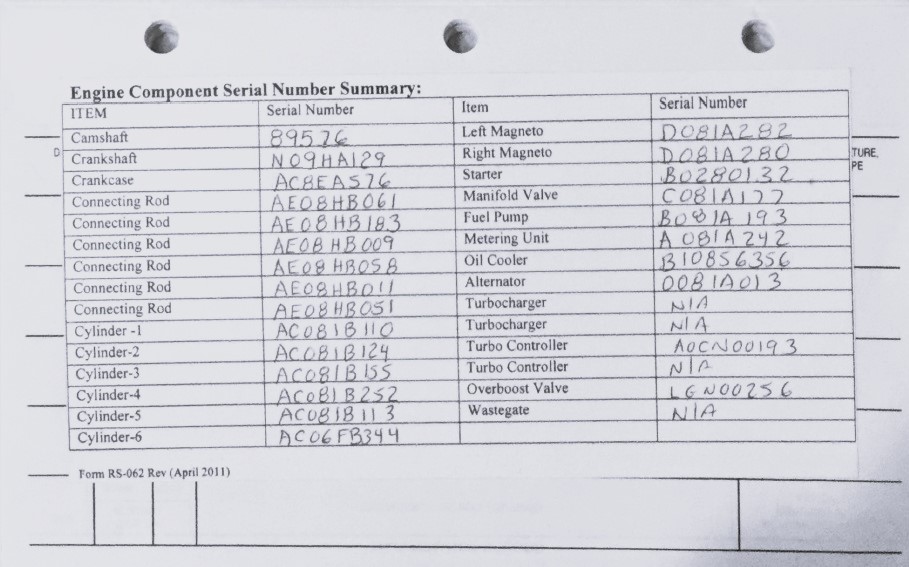 Engine Component Serial Number Summary:
ITEM Serial Number Item Serial Number
Camshaft 89576 Left Magneto D081A282
D Crankshaft N09HA129 Right Magneto D081A280 TURE,
Crankcase AC8EA576 Starter B0280132 PE
Connecting Rod AE08HB061 Manifold Valve C081A177
Connecting Rod AE08HB183 Fuel Pump B081A193
Connecting Rod AE08HB009 Metering Unit A081A242
Connecting Rod AE08HB058 Oil Cooler B10856356
Connecting Rod AE08HB011 Alternator 0081A013
Connecting Rod AE08HB051 Turbocharger N/A
Cylinder -1 AC081B110 Turbocharger N/A
Cylinder-2 AC081B124 Turbo Controller A0CN00193
Cylinder-3 AC081B155 Turbo Controller N/A
Cylinder-4 AC081B252 Overboost Valve LGN00256
Cylinder-5 AC081B113 Wastegate N/A
Cylinder-6 AC06FB344
Form RS-062 Rev (April 2011)